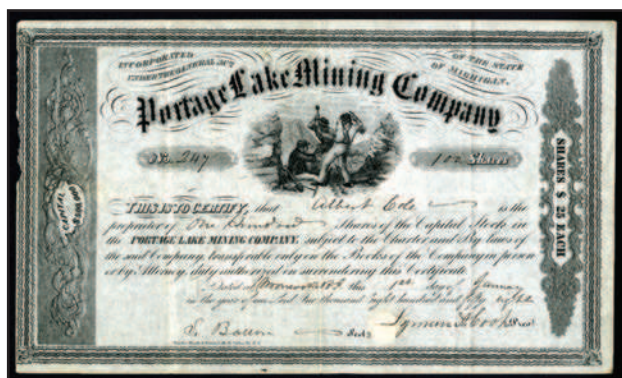 INCORPORATED
UNDER THE GENERAL ACT
OF THE STATE
OF MICHIGAN.
Portage Lake Mining Company
No. 247
100 Shares
CAPITAL
SHARES $ 25 EACH
THIS IS TO CERTIFY, that Albert Cole is the
proprietor of One Hundred Shares of the Capital Stock in
the PORTAGE LAKE MINING COMPANY, subject to the Charter and By laws of
the said Company, transferable only on the Books of the Company in person
or by Attorney, duly authorized on surrendering this Certificate
Dated at this 1st day of January
in the year of our Lord One thousand eight hundred and fifty eight
Sec'y
Lyman Cook Prest